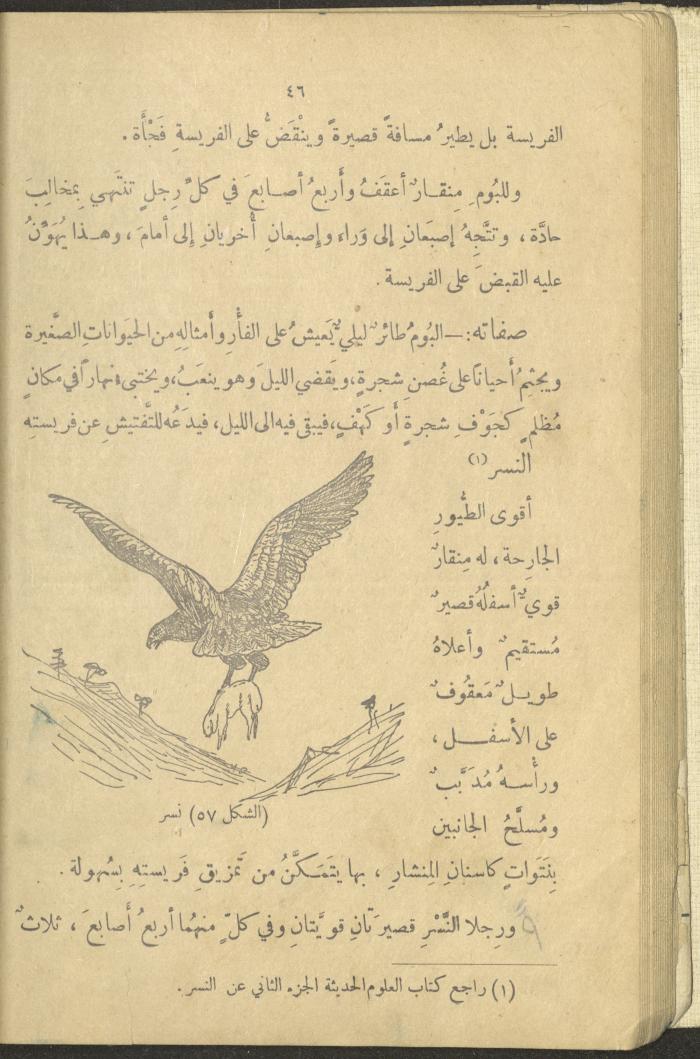 ٤٦
الفريسة بل يطيرُ مسافةً قصيرةً وينْقَضُّ على الفريسةِ فَجْأَة .
وللبُومِ مِنقارٌ أعقَفُ وأَربعُ أصابعَ في كلِّ رِجلٍ تنتَهي بِمخالِبَ
حادَّة ، وتتَّجِهُ إصبَعانِ إلى وَراء وإصبعانِ أُخريانِ إلى أمامَ ، وهذا يُهَوِّنُ
عليه القبضَ على الفريسة .
صفاته : — البُومُ طائرٌ ليليٌّ يَعيشُ على الفأْرِ وأَمثالِهِ من الحَيَوانات الصَّغيرة
ويجثِمُ أَحيانًا على غُصنِ شجرةٍ ، ويَقضي الليلَ وهو ينعَبُ ، ويختبىء نهاراً في مكانٍ
مُظلمٍ كجَوْفِ شجرةٍ أَو كَهْفٍ ، فيبقى فيه الى الليل ، فيدَعُه للتَّفتيشِ عن فريستِه
النسر (١)
أقوى الطُّيورِ
الجارِحة ، له مِنقارٌ
قويٌّ أسفلُهُ قصيرٌ
مُستقيمٌ وأعلاهُ
طويلٌ مَعقُوفٌ
على الأسفل ،
ورأْسهُ مُدَبَّبٌ
ومُسلَّحُ الجانبين
(الشكل ٥٧) نسر
بِنَتَواتٍ كاسنانِ المِنشارِ ، بها يتَمَكَّنُ من تَمزيقِ فَريستِهِ بِسُهولة .
ورِجلا النَّسْرِ قصيرَتانِ قويَّتانِ وفي كلٍّ منهُما أربعُ أَصابعَ ، ثلاثٌ
(١) راجع كتاب العلوم الحديثة الجزء الثاني عن النسر .